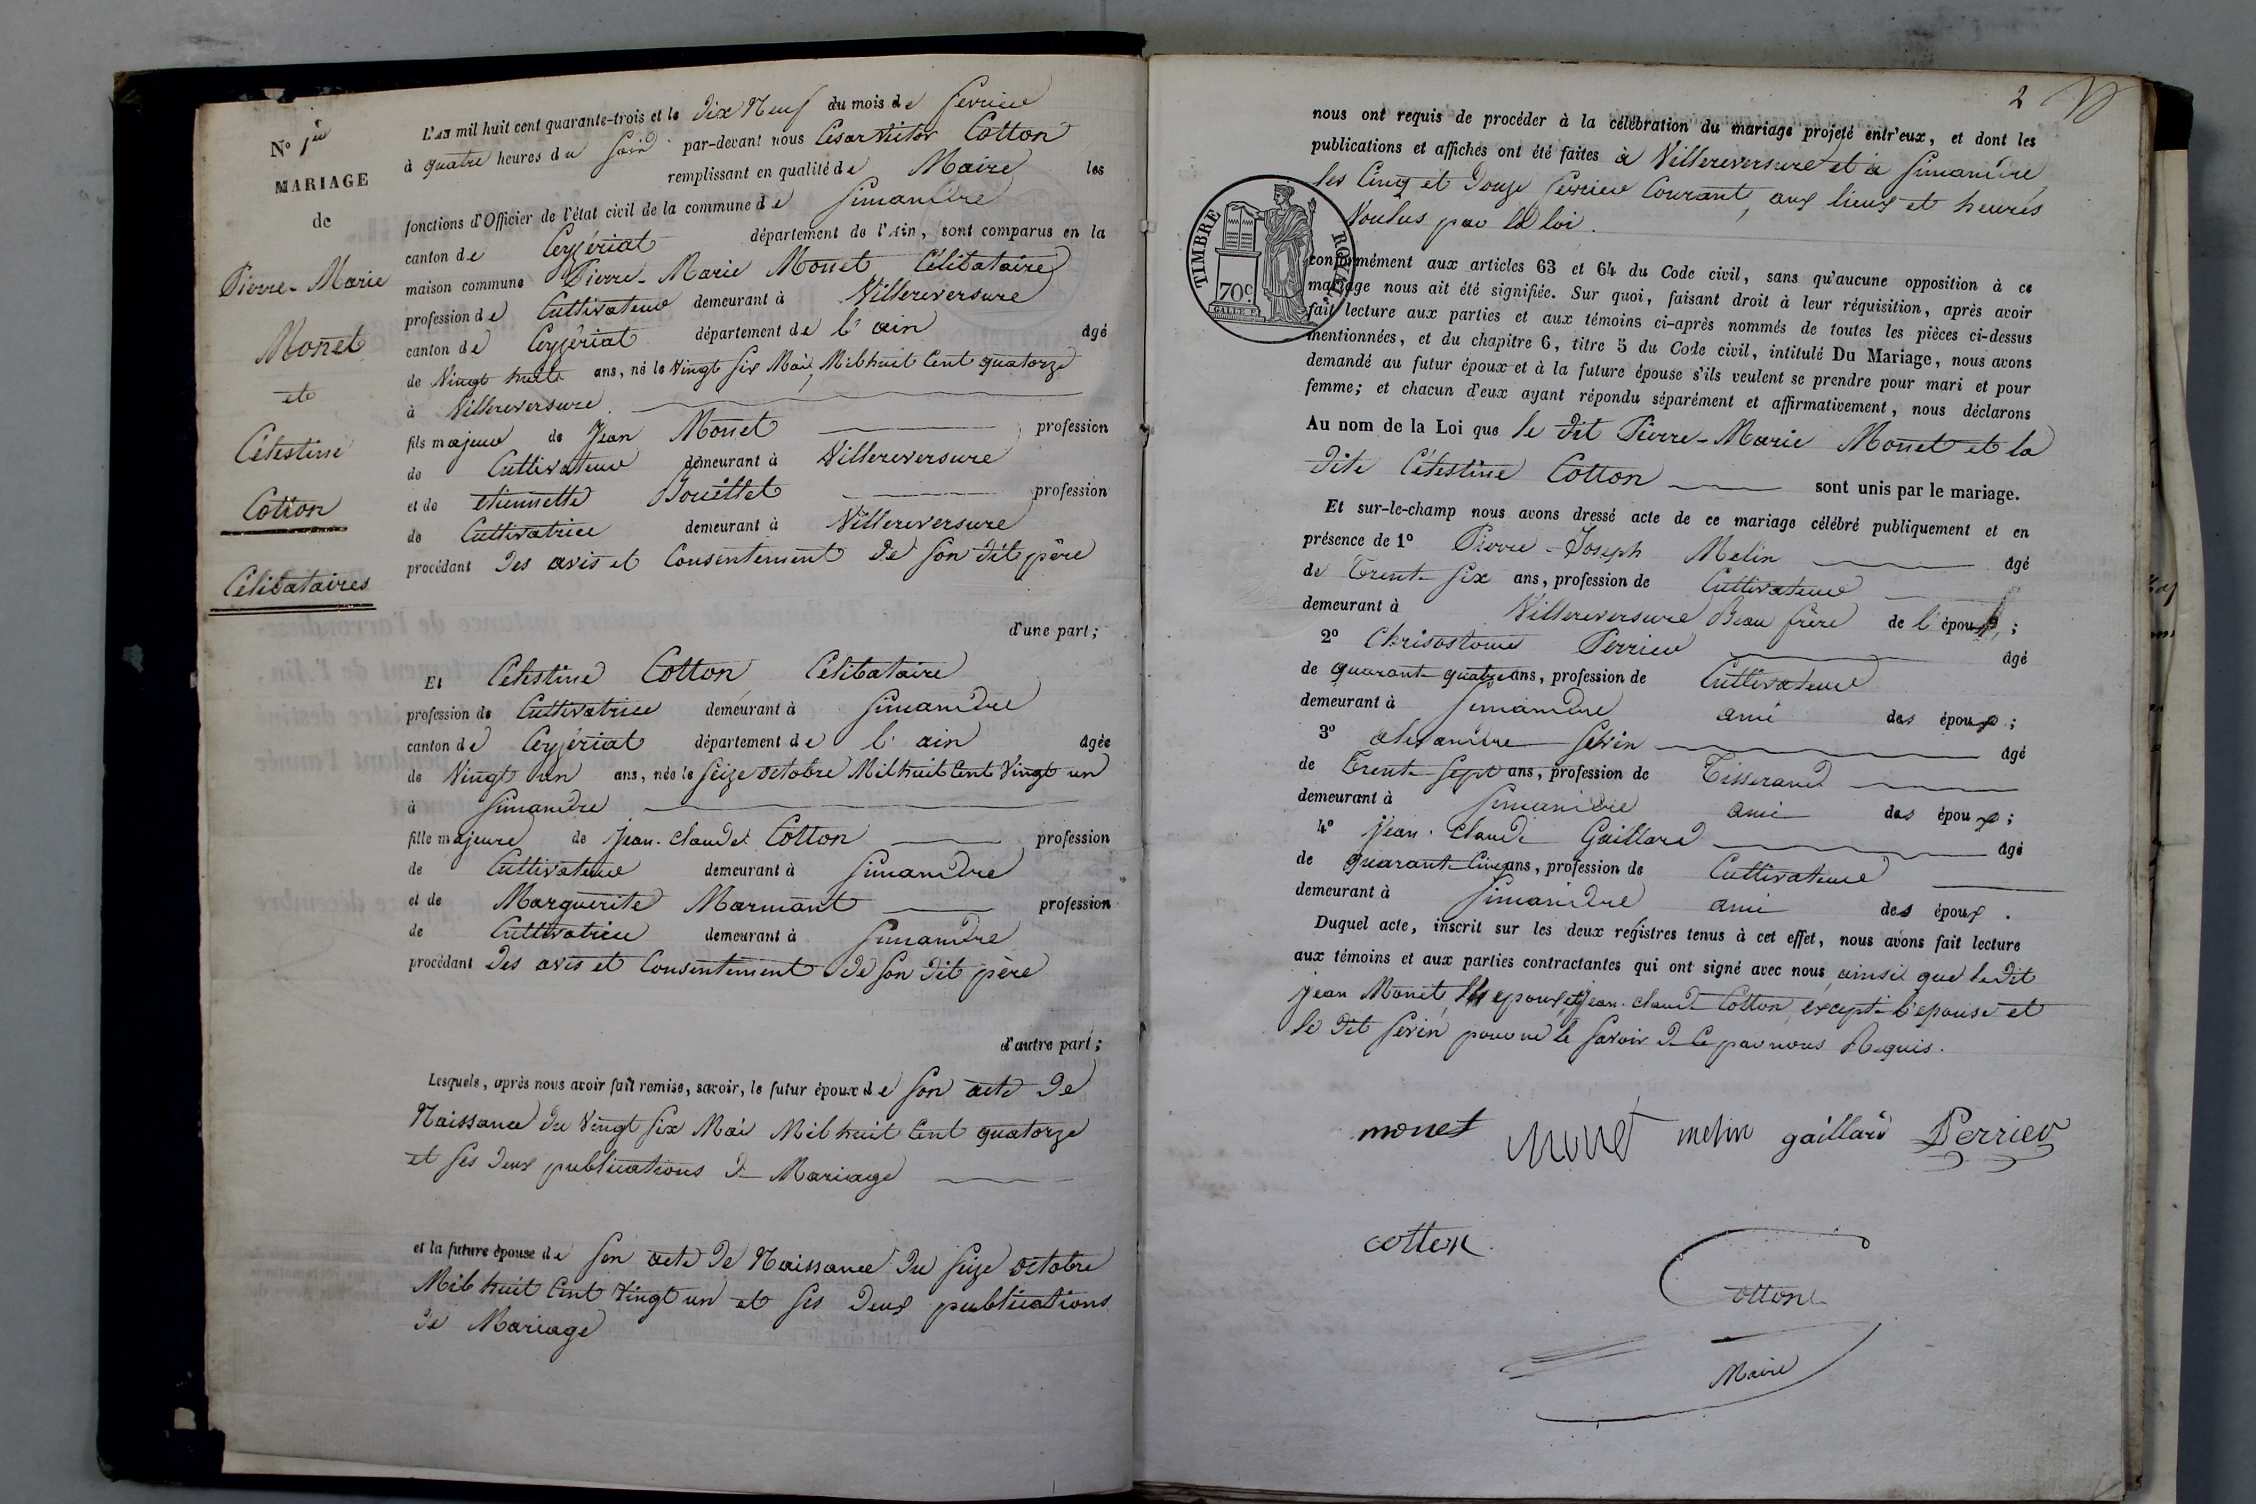 N° 1er
MARIAGE
de
Pierre-Marie
Monet
et
Célestine
Cotton
Célibataires
L'AN mil huit cent quarante-trois et le dix Neuf du mois de fevrier
à quatre heures du Soir par-devant nous César Victor Cotton
remplissant en qualité de Maire les
fonctions d'Officier de l'état civil de la commune de Simandre
canton de Ceyzériat département de l'Ain, sont comparus en la
maison commune Pierre-Marie Monet Célibataire
profession de Cultivateur demeurant à Villereversure
canton de Ceyzériat département de l'ain âgé
de Vingt huit ans, né le Vingt Six Mai Mil huit Cent quatorze
à Villereversure
fils majeur de Jean Monet profession
de Cultivateur demeurant à Villereversure
et de etiennette Bouillet profession
de Cultivatrice demeurant à Villereversure
procédant des avis et Consentement de Son dit père
d'une part;
Et Célestine Cotton Célibataire
profession de Cultivatrice demeurant à Simandre
canton de Ceyzériat département de l'ain âgée
de Vingt un ans, née le Seize octobre Mil huit Cent Vingt un
à Simandre
fille majeure de Jean-Claude Cotton profession
de Cultivateur demeurant à Simandre
et de Marguerite Marmant profession
de Cultivatrice demeurant à Simandre
procédant des avis et Consentement de Son dit père
d'autre part;
Lesquels, après nous avoir fait remise, savoir, le futur époux de Son acte de
Naissance du Vingt Six Mai Mil huit Cent quatorze
et Ses deux publications de Mariage
et la future épouse de Son acte de Naissance du Seize octobre
Mil huit Cent Vingt un et Ses deux publications
de Mariage
2
nous ont requis de procéder à la célébration du mariage projeté entr'eux, et dont les
publications et affiches ont été faites à Villereversure et à Simandre
les Cinq et douze fevrier Courant, aux lieux et heures
Voulus par la loi.
TIMBRE ROYAL
70c
conformément aux articles 63 et 64 du Code civil, sans qu'aucune opposition à ce
mariage nous ait été signifiée. Sur quoi, faisant droit à leur réquisition, après avoir
fait lecture aux parties et aux témoins ci-après nommés de toutes les pièces ci-dessus
mentionnées, et du chapitre 6, titre 5 du Code civil, intitulé Du Mariage, nous avons
demandé au futur époux et à la future épouse s'ils veulent se prendre pour mari et pour
femme; et chacun d'eux ayant répondu séparément et affirmativement, nous déclarons
Au nom de la Loi que le dit Pierre-Marie Monet et la
dite Célestine Cotton sont unis par le mariage.
Et sur-le-champ nous avons dressé acte de ce mariage célébré publiquement et en
présence de 1° Pierre-Joseph Melin âgé
de Trente Six ans, profession de Cultivateur
demeurant à Villereversure Beau frère de l'époux;
2° Chrisostome Perrier âgé
de quarante quatre ans, profession de Cultivateur
demeurant à Simandre ami des époux;
3° alexandre Sevin âgé
de Trente Sept ans, profession de Tisserand
demeurant à Simandre ami des époux;
4° Jean-Claude Gaillard âgé
de quarante Cinq ans, profession de Cultivateur
demeurant à Simandre ami des époux.
Duquel acte, inscrit sur les deux registres tenus à cet effet, nous avons fait lecture
aux témoins et aux parties contractantes qui ont signé avec nous ainsi que le dit
Jean Monet, epoux, et Jean-Claude Cotton, excepté l'épouse et
le dit Sevin pour ne le Savoir de Ce par nous Requis.
monet monet melin gaillard Perrier
cotton
Cotton
Maire